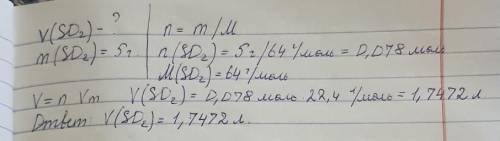 V(SO₂) - ? n = m/M
m(SO₂) = 5г n(SO₂) = 5г/64 г/моль = 0,078 моль
M(SO₂) = 64 г/моль
V = n Vm V(SO₂) = 0,078 моль 22,4 л/моль = 1,7472 л.
Ответ V(SO₂) = 1,7472 л.